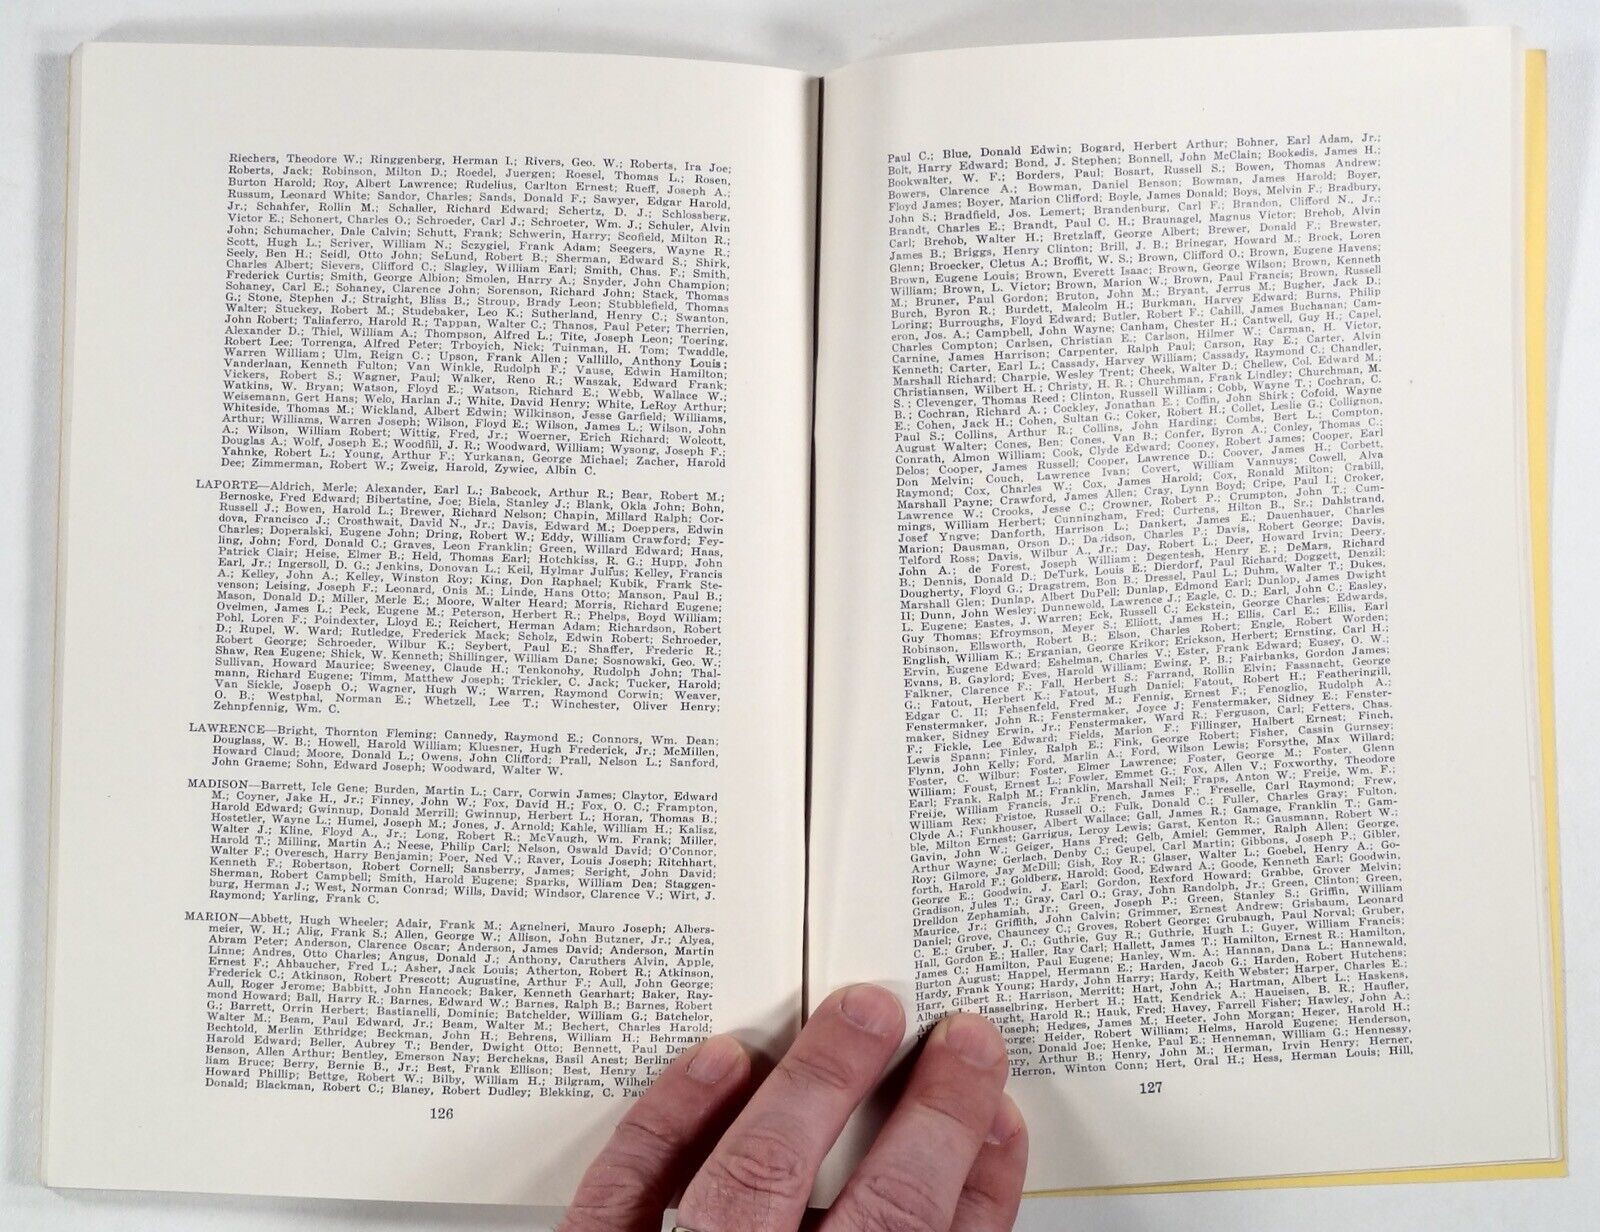 Riechers, Theodore W.; Ringgenberg, Herman I.; Rivers, Geo. W.; Roberts, Ira Joe;
Roberts, Jack; Robinson, Milton D.; Roedel, Juergen; Roesel, Thomas L.; Rosen,
Burton Harold; Roy, Albert Lawrence; Rudelius, Carlton Ernest; Rueff, Joseph A.;
Russum, Leonard White; Sandor, Charles; Sands, Donald F.; Sawyer, Edgar Harold,
Jr.; Schahfer, Rollin M.; Schaller, Richard Edward; Schertz, D. J.; Schlossberg,
Victor E.; Schonert, Charles O.; Schroeder, Carl J.; Schroeter, Wm. J.; Schuler, Alvin
John; Schumacher, Dale Calvin; Schutt, Frank; Schwerin, Harry; Scofield, Milton R.;
Scott, Hugh L.; Scriver, William N.; Sczygiel, Frank Adam; Seegers, Wayne R.;
Seely, Ben H.; Seidl, Otto John; SeLund, Robert B.; Sherman, Edward S.; Shirk,
Charles Albert; Sievers, Clifford C.; Slagley, William Earl; Smith, Chas. F.; Smith,
Frederick Curtis; Smith, George Albion; Smolen, Harry A.; Snyder, John Champion;
Sohaney, Carl E.; Sohaney, Clarence John; Sorenson, Richard John; Stack, Thomas
G.; Stone, Stephen J.; Straight, Bliss B.; Stroup, Brady Leon; Stubblefield, Thomas
Walter; Stuckey, Robert M.; Studebaker, Leo K.; Sutherland, Henry C.; Swanton,
John Robert; Taliaferro, Harold R.; Tappan, Walter C.; Thanos, Paul Peter; Therrien,
Alexander D.; Thiel, William A.; Thompson, Alfred L.; Tite, Joseph Leon; Toering,
Robert Lee; Torrenga, Alfred Peter; Trboyich, Nick; Tuinman, H. Tom; Twaddle,
Warren William; Ulm, Reign C.; Upson, Frank Allen; Vallillo, Anthony Louis;
Vanderlaan, Kenneth Fulton; Van Winkle, Rudolph F.; Vause, Edwin Hamilton;
Vickers, Robert S.; Wagner, Paul; Walker, Reno R.; Waszak, Edward Frank;
Watkins, W. Bryan; Watson, Floyd E.; Watson, Richard E.; Webb, Wallace W.;
Weisemann, Gert Hans; Welo, Harlan J.; White, David Henry; White, LeRoy Arthur;
Whiteside, Thomas M.; Wickland, Albert Edwin; Wilkinson, Jesse Garfield; Williams,
Arthur; Williams, Warren Joseph; Wilson, Floyd E.; Wilson, James L.; Wilson, John
A.; Wilson, William Robert; Wittig, Fred, Jr.; Woerner, Erich Richard; Wolcott,
Douglas A.; Wolf, Joseph E.; Woodfill, J. R.; Woodward, William; Wysong, Joseph F.;
Yahnke, Robert L.; Young, Arthur F.; Yurkanan, George Michael; Zacher, Harold
Dee; Zimmerman, Robert W.; Zweig, Harold, Zywiec, Albin C.
LAPORTE—Aldrich, Merle; Alexander, Earl L.; Babcock, Arthur R.; Bear, Robert M.;
Bernoske, Fred Edward; Bibertstine, Joe; Biela, Stanley J.; Blank, Okla John; Bohn,
Russell J.; Bowen, Harold L.; Brewer, Richard Nelson; Chapin, Millard Ralph; Cor-
dova, Francisco J.; Crosthwait, David N., Jr.; Davis, Edward M.; Doeppers, Edwin
Charles; Doperalski, Eugene John; Dring, Robert W.; Eddy, William Crawford; Fey-
ling, John; Ford, Donald C.; Graves, Leon Franklin; Green, Willard Edward; Haas,
Patrick Clair; Heise, Elmer B.; Held, Thomas Earl; Hotchkiss, R. G.; Hupp, John
Earl, Jr.; Ingersoll, D. G.; Jenkins, Donovan L.; Keil, Hylmar Julius; Kelley, Francis
A.; Kelley, John A.; Kelley, Winston Roy; King, Don Raphael; Kubik, Frank Ste-
venson; Leising, Joseph F.; Leonard, Onis M.; Linde, Hans Otto; Manson, Paul B.;
Mason, Donald D.; Miller, Merle E.; Moore, Walter Heard; Morris, Richard Eugene;
Ovelmen, James L.; Peck, Eugene M.; Peterson, Herbert R.; Phelps, Boyd William;
Pohl, Loren F.; Poindexter, Lloyd E.; Reichert, Herman Adam; Richardson, Robert
D.; Rupel, W. Ward; Rutledge, Frederick Mack; Scholz, Edwin Robert; Schroeder,
Robert George; Schroeder, Wilbur K.; Seybert, Paul E.; Shaffer, Frederic R.;
Shaw, Rea Eugene; Shick, W. Kenneth; Shillinger, William Dane; Sosnowski, Geo. W.;
Sullivan, Howard Maurice; Sweeney, Claude H.; Tenkonohy, Rudolph John; Thal-
mann, Richard Eugene; Timm, Matthew Joseph; Trickler, C. Jack; Tucker, Harold;
Van Sickle, Joseph O.; Wagner, Hugh W.; Warren, Raymond Corwin; Weaver,
O. B.; Westphal, Norman E.; Whetzell, Lee T.; Winchester, Oliver Henry;
Zehnpfennig, Wm. C.
LAWRENCE—Bright, Thornton Fleming; Cannedy, Raymond E.; Connors, Wm. Dean;
Douglass, W. B.; Howell, Harold William; Kluesner, Hugh Frederick, Jr.; McMillen,
Howard Claud; Moore, Donald L.; Owens, John Clifford; Prall, Nelson L.; Sanford,
John Graeme; Sohn, Edward Joseph; Woodward, Walter W.
MADISON—Barrett, Icle Gene; Burden, Martin L.; Carr, Corwin James; Claytor, Edward
M.; Coyner, Jake H., Jr.; Finney, John W.; Fox, David H.; Fox, O. C.; Frampton,
Harold Edward; Gwinnup, Donald Merrill; Gwinnup, Herbert L.; Horan, Thomas B.;
Hostetler, Wayne L.; Humel, Joseph M.; Jones, J. Arnold; Kahle, William H.; Kalisz,
Walter J.; Kline, Floyd A., Jr.; Long, Robert R.; McVaugh, Wm. Frank; Miller,
Harold T.; Milling, Martin A.; Neese, Philip Carl; Nelson, Oswald David; O'Connor,
Walter F.; Overesch, Harry Benjamin; Poer, Ned V.; Raver, Louis Joseph; Ritchhart,
Kenneth F.; Robertson, Robert Cornell; Sansberry, James; Seright, John David;
Sherman, Robert Campbell; Smith, Harold Eugene; Sparks, William Dea; Staggen-
burg, Herman J.; West, Norman Conrad; Wills, David; Windsor, Clarence V.; Wirt, J.
Raymond; Yarling, Frank C.
MARION—Abbett, Hugh Wheeler; Adair, Frank M.; Agnelneri, Mauro Joseph; Albers-
meier, W. H.; Alig, Frank S.; Allen, George W.; Allison, John Butzner, Jr.; Alyea,
Abram Peter; Anderson, Clarence Oscar; Anderson, James David; Anderson, Martin
Linne; Andres, Otto Charles; Angus, Donald J.; Anthony, Caruthers Alvin, Apple,
Ernest F.; Ahbaucher, Fred L.; Asher, Jack Louis; Atherton, Robert R.; Atkinson,
Frederick C.; Atkinson, Robert Prescott; Augustine, Arthur F.; Aull, John George;
Aull, Roger Jerome; Babbitt, John Hancock; Baker, Kenneth Gearhart; Baker, Ray-
mond Howard; Ball, Harry R.; Barnes, Edward W.; Barnes, Ralph B.; Barnes, Robert
G.; Barrett, Orrin Herbert; Bastianelli, Dominic; Batchelder, William G.; Batchelor,
Walter M.; Beam, Paul Edward, Jr.; Beam, Walter M.; Bechert, Charles Harold;
Bechtold, Merlin Ethridge; Beckman, John H.; Behrens, William H.; Behrmann,
Harold Edward; Beller, Aubrey T.; Bender, Dwight Otto; Bennett, Paul
Benson, Allen Arthur; Bentley, Emerson Nay; Berchekas, Basil Anest;
liam Bruce; Berry, Bernie B., Jr.; Best, Frank Ellison; Best, Henry L.;
Howard Phillip; Bettge, Robert W.; Bilby, William H.; Bilgram,
Donald; Blackman, Robert C.; Blaney, Robert Dudley; Blekking, C.
126
Paul C.; Blue, Donald Edwin; Bogard, Herbert Arthur; Bohner, Earl Adam, Jr.;
Bolt, Harry Edward; Bond, J. Stephen; Bonnell, John McClain; Bookedis, James H.;
Bookwalter, W. F.; Borders, Paul; Bosart, Russell S.; Bowen, Thomas Andrew;
Bowers, Clarence A.; Bowman, Daniel Benson; Bowman, James Harold; Boyer,
Floyd James; Boyer, Marion Clifford; Boyle, James Donald; Boys, Melvin F.; Bradbury,
John S.; Bradfield, Jos. Lemert; Brandenburg, Carl F.; Brandon, Clifford N., Jr.;
Brandt, Charles E.; Brandt, Paul C. H.; Braunagel, Magnus Victor; Brehob, Alvin
Carl; Brehob, Walter H.; Bretzlaff, George Albert; Brewer, Donald F.; Brewster,
James B.; Briggs, Henry Clinton; Brill, J. B.; Brinegar, Howard M.; Brock, Loren
Glenn; Broecker, Cletus A.; Broffit, W. S.; Brown, Clifford O.; Brown, Eugene Havens;
Brown, Eugene Louis; Brown, Everett Isaac; Brown, George Wilson; Brown, Kenneth
William; Brown, L. Victor; Brown, Marion W.; Brown, Paul Francis; Brown, Russell
M.; Bruner, Paul Gordon; Bruton, John M.; Bryant, Jerrus M.; Bugher, Jack D.;
Burch, Byron R.; Burdett, Malcolm H.; Burkman, Harvey Edward; Burns, Philip
Loring; Burroughs, Floyd Edward; Butler, Robert F.; Cahill, James Buchanan; Cam-
eron, Jos. A.; Campbell, John Wayne; Canham, Chester H.; Cantwell, Guy H.; Capel,
Charles Compton; Carlsen, Christian E.; Carlson, Hilmer W.; Carman, H. Victor,
Carnine, James Harrison; Carpenter, Ralph Paul; Carson, Ray E.; Carter, Alvin
Kenneth; Carter, Earl L.; Cassady, Harvey William; Cassady, Raymond C.; Chandler,
Marshall Richard; Charpie, Wesley Trent; Cheek, Walter D.; Chellew, Col. Edward M.;
Christiansen, Wilbert H.; Christy, H. R.; Churchman, Frank Lindley; Churchman, M.
S.; Clevenger, Thomas Reed; Clinton, Russell William; Cobb, Wayne T.; Cochran, C.
B.; Cochran, Richard A.; Cockley, Jonathan E.; Coffin, John Shirk; Cofoid, Wayne
E.; Cohen, Jack H.; Cohen, Sultan G.; Coker, Robert H.; Collet, Leslie G.; Collignon,
Paul S.; Collins, Arthur R.; Collins, John Harding; Combs, Bert L.; Compton,
August Walter; Cones, Ben; Cones, Van B.; Confer, Byron A.; Conley, Thomas C.;
Conrath, Almon William; Cook, Clyde Edward; Cooney, Robert James; Cooper, Earl
Delos; Cooper, James Russell; Cooper, Lawrence D.; Coover, James H.; Corbett,
Don Melvin; Couch, Lawrence Ivan; Covert, William Vannuys; Cowell, Alva
Raymond; Cox, Charles W.; Cox, James Harold; Cox, Ronald Milton; Crabill,
Marshall Payne; Crawford, James Allen; Cray, Lynn Boyd; Cripe, Paul I.; Croker,
Lawrence W.; Crooks, Jesse C.; Crowner, Robert P.; Crumpton, John T.; Cum-
mings, William Herbert; Cunningham, Fred; Curtens, Hilton B., Sr.; Dahlstrand,
Josef Yngve; Danforth, Harrison L.; Dankert, James E.; Dauenhauer, Charles
Marion; Dausman, Orson D.; Davidson, Charles P.; Davis, Robert George; Davis,
Telford Ross; Davis, Wilbur A., Jr.; Day, Robert L.; Deer, Howard Irvin; Deery,
John A.; de Forest, Joseph William; Degentesh, Henry E.; DeMars, Richard
B.; Dennis, Donald D.; DeTurk, Louis E.; Dierdorf, Paul Richard; Doggett, Denzil;
Dougherty, Floyd G.; Dragstrem, Bon B.; Dressel, Paul L.; Duhm, Walter T.; Dukes,
Marshall Glen; Dunlap, Albert DuPell; Dunlap, Edmond Earl; Dunlop, James Dwight
II; Dunn, John Wesley; Dunnewold, Lawrence J.; Eagle, C. D.; Earl, John C.; Easley,
L. Eugene; Eastes, J. Warren; Eck, Russell C.; Eckstein, George Charles; Edwards,
Guy Thomas; Efroymson, Meyer S.; Elliott, James H.; Ellis, Carl E.; Ellis, Earl
Robinson, Ellsworth, Robert B.; Elson, Charles Robert; Engle, Robert Worden;
English, William K.; Erganian, George Krikor; Erickson, Herbert; Ernsting, Carl H.;
Ervin, Eugene Edward; Eshelman, Charles V.; Ester, Frank Edward; Eusey, O. W.;
Evans, B. Gaylord; Eves, Harold William; Ewing, P. B.; Fairbanks, Gordon James;
Falkner, Clarence F.; Fall, Herbert S.; Farrand, Rollin Elvin; Fassnacht, George
G.; Fatout, Herbert K.; Fatout, Hugh Daniel; Fatout, Robert H.; Featheringill,
Edgar C. II; Fehsenfeld, Fred M.; Fennig, Ernest F.; Fenoglio, Rudolph A.;
Fenstermaker, John R.; Fenstermaker, Joyce J; Fenstermaker, Sidney E.; Fenster-
maker, Sidney Erwin, Jr.; Fenstermaker, Ward R.; Ferguson, Carl; Fetters, Chas.
F.; Fickle, Lee Edward; Fields, Marion F.; Fillinger, Halbert Ernest; Finch,
Lewis Spann; Finley, Ralph E.; Fink, George Robert; Fisher, Cassin Gurnsey;
Flynn, John Kelly; Ford, Marlin A.; Ford, Wilson Lewis; Forsythe, Max Willard;
Foster, C. Wilbur; Foster, Elmer Lawrence; Foster, George M.; Foster, Glenn
William; Foust, Ernest L.; Fowler, Emmet G.; Fox, Allen V.; Foxworthy, Theodore
Earl; Frank, Ralph M.; Franklin, Marshall Neil; Fraps, Anton W.; Freije, Wm. F.;
Freije, William Francis, Jr.; French, James F.; Freselle, Carl Raymond; Frew,
William Rex; Fristoe, Russell O.; Fulk, Donald C.; Fuller, Charles Gray; Fulton,
Clyde A.; Funkhouser, Albert Wallace; Gall, James R.; Gamage, Franklin T.; Gam-
ble, Milton Ernest; Garrigus, Leroy Lewis; Garst, Kenton R.; Gausmann, Robert W.;
Gavin, John W.; Geiger, Hans Fred; Gelb, Amiel; Gemmer, Ralph Allen; George,
Arthur Wayne; Gerlach, Denby C.; Geupel, Carl Martin; Gibbons, Joseph P.; Gibler,
Roy; Gilmore, Jay McDill; Gish, Roy R.; Glaser, Walter L.; Goebel, Henry A.; Go-
forth, Harold F.; Goldberg, Harold; Good, Edward A.; Goode, Kenneth Earl; Goodwin,
George E.; Goodwin, J. Earl; Gordon, Rexford Howard; Grabbe, Grover Melvin;
Gradison, Jules T.; Gray, Carl O.; Gray, John Randolph, Jr.; Green, Clinton; Green,
Drelldon Zephamiah, Jr.; Green, Joseph P.; Green, Stanley S.; Griffin, William
Maurice, Jr.; Griffith, John Calvin; Grimmer, Ernest Andrew; Grisbaum, Leonard
Daniel; Grove, Chauncey C.; Groves, Robert George; Grubaugh, Paul Norval; Gruber,
C. E.; Gruber, J. C.; Guthrie, Guy R.; Guthrie, Hugh I.; Guyer, William Francis;
Hall, Gordon E.; Haller, Ray Carl; Hallett, James T.; Hamilton, Ernest R.; Hamilton,
James C.; Hamilton, Paul Eugene; Hanley, Wm. A.; Hannan, Dana L.; Hannewald,
Burton August; Happel, Hermann E.; Harden, Jacob G.; Harden, Robert Hutchens;
Hardy, Frank Young; Hardy, John Harry; Hardy, Keith Webster; Harper, Charles E.;
Harr, Gilbert R.; Harrison, Merritt; Hart, John A.; Hartman, Albert L.; Haskens,
Albert; Hasselbring, Herbert H.; Hatt, Kendrick A.; Haueisen, B. R.; Haufler,
Harold R.; Hauk, Fred; Havey, Farrell Fisher; Hawley, John A.;
Joseph; Hedges, James M.; Heeter, John Morgan; Heger, Harold H.;
George; Heider, Robert William; Helms, Harold Eugene; Henderson,
Donald Joe; Henke, Paul E.; Henneman, William G.; Hennessy,
Arthur B.; Henry, John M.; Herman, Irvin Henry; Herner,
Herron, Winton Conn; Hert, Oral H.; Hess, Herman Louis; Hill,
127